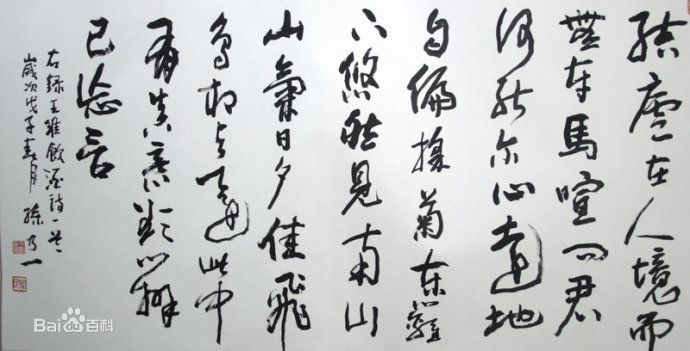 结廬在人境而
無车馬喧问君
何能尔心遠地
自偏採菊东籬
下悠然見南山
山氣日夕佳飛
鸟相与還此中
有真意欲辨
已忘言
右録王維飲酒詩一首
歲次戊子春月 孫乃一
Bai百科